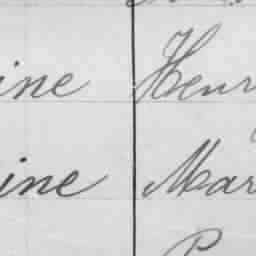 ine Henr
ine Mar